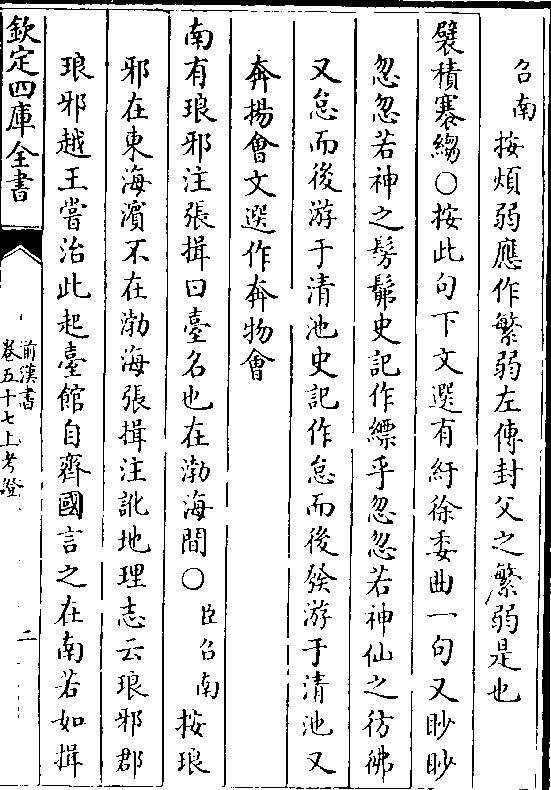 召南按煩弱應作繁弱左傳封父之繁弱是也
襞積褰縐○按此句下文選有紆徐委曲一句又眇眇
忽忽若神之髣髴史記作縹乎忽忽若神仙之彷彿
又怠而後游于清池史記作怠而後發游于清池又
奔揚會文選作奔物會
南有琅邪注張揖曰臺名也在渤海間○臣召南按琅
邪在東海濱不在渤海張揖注訛地理志云琅邪郡
琅邪越王嘗治此起臺館自齊國言之在南若如揖
欽定四庫全書
前漢書
卷五十七上考證
二